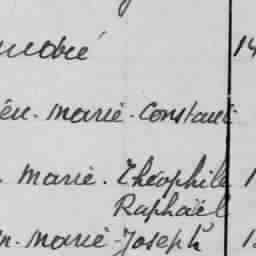 en. Marie. Constant
. Marie. Théophile
Raphaël
n. Marie-Joseph